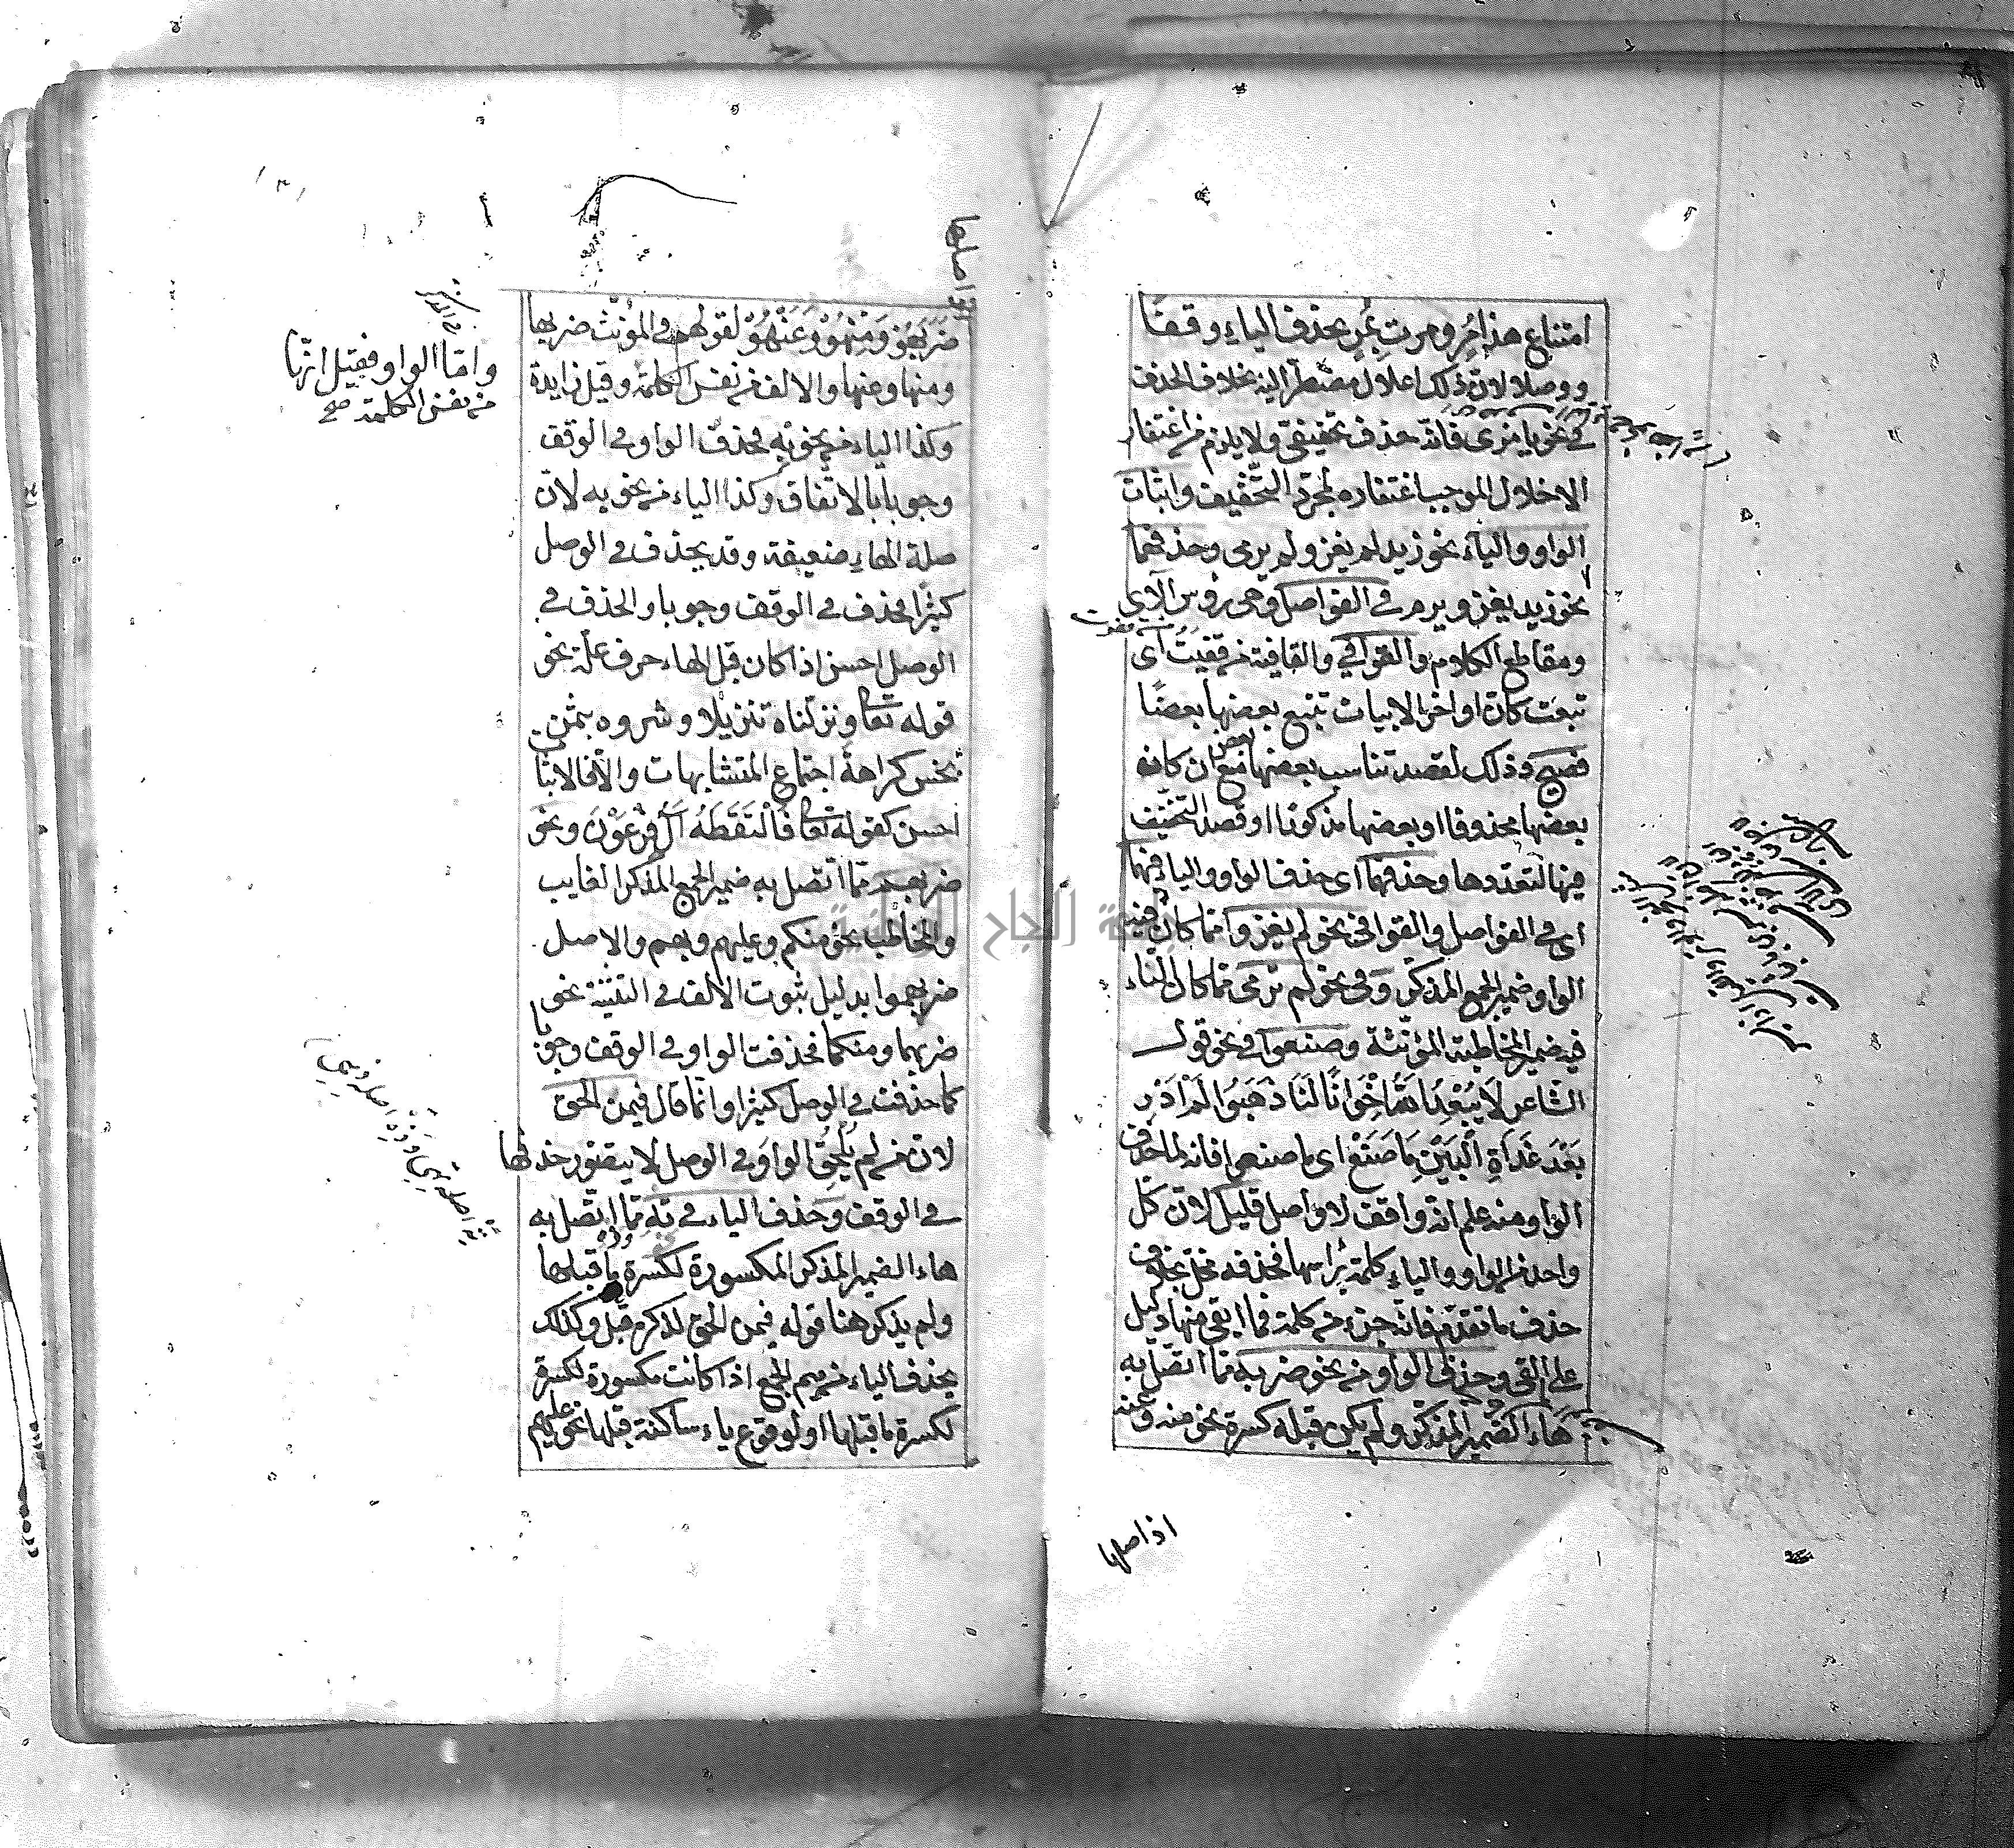 امتناع هذا مُرٍ ومررت بِمُرٍ بحذف الياء وقفا
ووصلا لان ذلك اعلال مضطرّ اليه بخلاف الحذف
في نحو يا مرى فانّه حذف تخفيفي ولا يلزم من اغتفار
الاخلال الموجب اغتفاره لمجرّد التخفيف واثبات
الواو والياء نحو زيد لم يغزو ولم يرمى وحذفهما
نحو زيد يغز ويرم في الفواصل وهي رؤس الآي
ومقاطع الكلام والقوافي والقافية من قفيت أي
تبعت كان اواخر الابيات تتبع بعضها بعضا
فصيح وذلك لقصد تناسب بعضها مع بعض ان كان
بعضها محذوفا او بعضها مذكورا او قصد التخفيف
فيها لتعددها وحذفهما اى حذف الواو والياء فيهما
اى في الفواصل والقوافي نحو لم يغزو مما كان فيه
الواو ضمير الجمع المذكر وفي نحو لم ترمى مما كان الياء
فيه ضمير المخاطبة المؤنّثة وصنعوا في نحو قول
الشاعر لَا يُبْعِدُ اللهُ اِخْوَانًا لَنَا ذَهَبُوا لَمْ اَدْرِ
بَعْدَ غَدَاةِ الْبَيْنِ مَا صَنَعْ اى ما صنعوا فانه لما حذف
الواو منه علم انه واقف لا واصل قليل لان كل
واحد من الواو والياء كلمة براسها فحذفه مخل بخلاف
حذف ما تقدّم فانه جزء من كلمة فما ابقى منها دليل
على القى وحذف الواو من نحو ضربه مما اتصل به
هاء الضمير المذكّر ولم يكن قبله كسرة نحو منه وعنه
اذ اصلها
اذ اصلها
ضَرَبَهُو وَمِنْهُو وَعَنْهُو لقولهم في المؤنّث ضربها
ومنها وعنها والالف من نفس الكلمة وقيل زايدة
واما الواو فقيل انّها
من نفس الكلمة صح
وكذا الياء من نحو بِهِ فحذف الواو في الوقف
وجوبا بالاتفاق وكذا الياء من نحو به لان
صلة الهاء ضعيفة وقد يحذف في الوصل
كثيرًا فحذف في الوقف وجوبا والحذف في
الوصل احسن اذا كان قبل الهاء حرف علّة نحو
قوله تعا ونزلناه تنزيلا وشروه بثمن
بخس كراهة اجتماع المتشابهات والّا فالاثبات
احسن كقوله تعا فَالْتَقَطَهُ آلُ فِرْعَوْنَ ونحو
ضربهم مما اتصل به ضمير الجمع المذكر الغايب
والمخاطب نحو منكم وعليهم وبهم والاصل
ضربهموا بدليل ثبوت الالف في التثنية نحو
ضربهما ومنكما فحذفت الواو في الوقف وجوبا
كما حذفت في الوصل كثيرا وانما قال فيمن الحق
لان من لم يُلْحِقِ الواوَ في الوصل لا يتصوّر حذفها
في الوقف وحذف الياء في تِهِ مما اتصل به
هاء الضمير المذكر المكسورة لكسرة ما قبلها
ولم يذكر هنا قوله فيمن الحق لذكره قبل وكذلك
يحذف الياء من ميم الجمع اذا كانت مكسورة لكسرة
لكسرة ما قبلها او لوقوع ياء ساكنة قبلها نحو عليهم
جامعة النجاح الوطنية